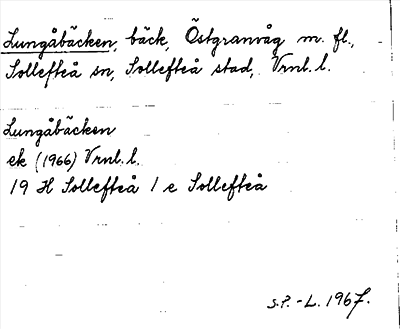 Lungåbäcken, bäck, Östgranvåg m. fl.,
Sollefteå sn, Sollefteå stad, Vrnl. l.
Lungåbäcken
ek (1966) Vrnl. l.
19 H Sollefteå 1 e Sollefteå
S.P. -L. 1967.